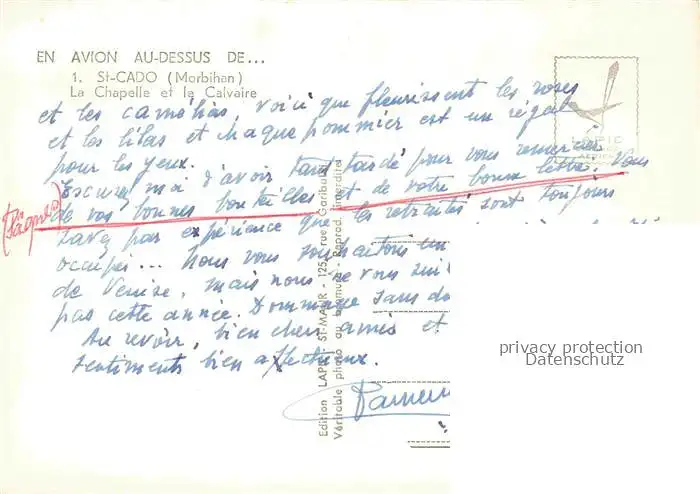 EN AVION AU-DESSUS DE...
1. St-CADO (Morbihan)
La Chapelle et le Calvaire
LAPIE
et les camélias, voici que fleurissent les roses
et les lilas et chaque pommier est un régal
pour les yeux.
Excusez moi d'avoir tant tardé pour vous remercier
de vos bonnes bouteilles et de votre bonne lettre. Vous
(Pâques)
savez par expérience que les retraités sont toujours
occupés... Nous vous souhaitons un
de Venise, mais nous ne vous suiv
pas cette année. Dommage sans do
Au revoir, bien chers amis et
sentiments bien affectueux.
Edition LAPIE - ST-MAUR - 125, rue Garibaldi
Véritable photo au bromure - Reprod. interdite
privacy protection
Datenschutz